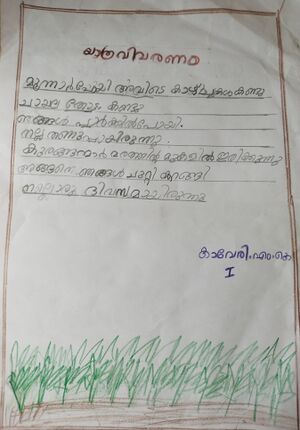 യാത്രവിവരണം
മൂന്നാർപോയി അവിടെ കാഴ്ച്ചകൾകണ്ടു
ചായല തോട്ടം കണ്ടു
ഞങ്ങൾ പാർക്കിൽപോയി.
നല്ല തണുപ്പായിരുന്നു.
കുരങ്ങന്മാർ മരത്തിന്റ മുകളിൽ ഇരിക്കുന്നു
അങ്ങനെ ഞങ്ങൾ ചുറ്റി കറങ്ങി
നല്ലൊരു ദിവസമായിരുന്നു
കാവേരി.എം.കെ
I